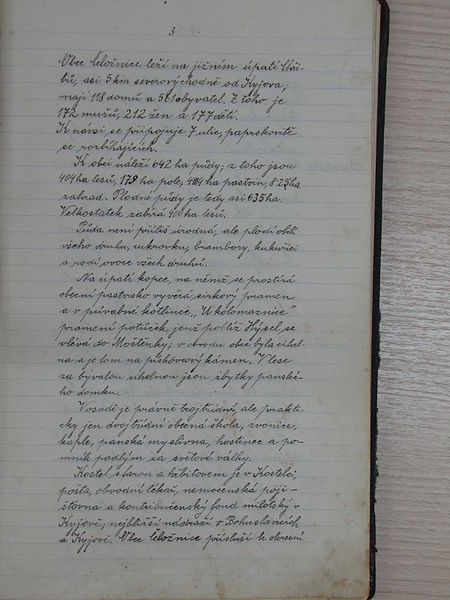 3
Obec Čeložnice leží na jižním úpatí Chři-
bů, asi 5 km severovýchodně od Kyjova;
mají 118 domů a 561 obyvatel. Z toho je
172 mužů, 212 žen a 177 dětí.
K návsi se připojuje 7 ulic, paprskovitě
se rozbíhajících.
K obci náleží 642 ha půdy; z toho jsou
404 ha lesů, 179 ha pole, ha pastvin, 8.25 ha
zahrad. Plodné půdy je tedy asi 635 ha.
Velkostatek zabírá 400 ha lesů.
Půda není příliš úrodná, ale plodí obilí
všeho druhu, cukrovku, brambory, kukuřici
a rodí ovoce všech druhů.
Na úpatí kopce, na němž se prostírá
obecní pastvisko vyvěrá sirkový pramen
a v půvabné kotlince „U kolomaznice"
pramení potůček, jenž poblíž Hýsel se
vlévá do Moštěnky; v obvodu obce byla cihel-
na a je lom na pískovcový kámen. V lese
za bývalou cihelnou jsou zbytky panské-
ho domku.
V osadě je právně trojtřídní, ale prakti-
cky jen dvojtřídní obecná škola, zvonice,
kaple, panská myslivna, hostinec a po-
mník padlým za světové války.
Kostel s farou a hřbitovem je v Kostelci;
pošta, obvodní lékař, nemocenská poji-
šťovna a kontribučenský fond milotský v
Kyjově; nejbližší nádraží v Bohuslavicích
a Kyjově. Obec Čeložnice přísluší k okresní